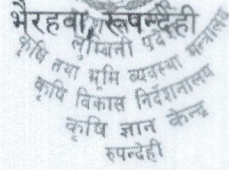 भैरहवा, रूपन्देही
लुम्बिनी प्रदेश
कृषि तथा भूमि व्यवस्था मन्त्रालय
कृषि विकास निर्देशनालय
कृषि ज्ञान केन्द्र
रुपन्देही